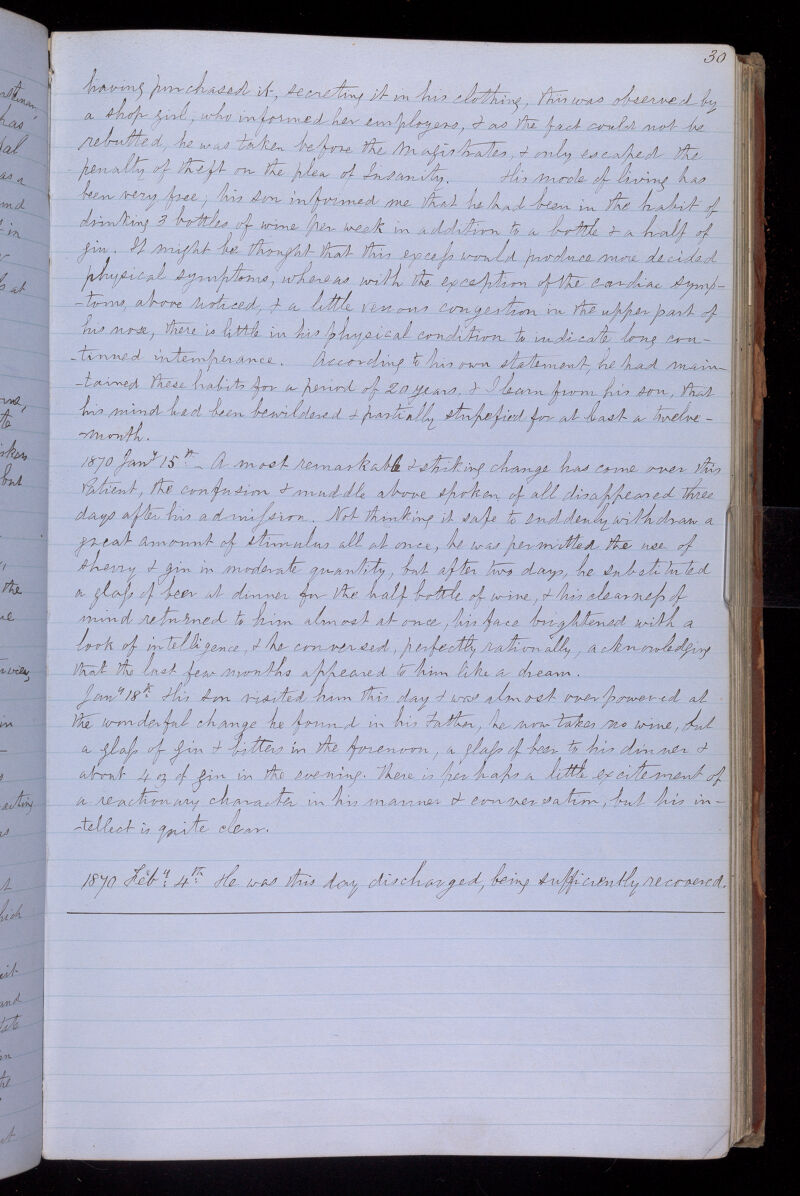 30
having purchased it, secreting it in his clothing, this was observed by
a shop girl, who informed her employers, & as the fact could not be
rebutted, he was taken before the Magistrates, & only escaped the
penalty of theft on the plea of Insanity. His mode of living has
been very free; his son informed me that he had been in the habit of
drinking 3 bottles of wine per week in addition to a bottle & a half of
gin. It might be thought that this excess would produce more decided
physical symptoms, whereas with the exception of the cardiac symp-
-toms, above noticed, & a little venous congestion in the upper part of
his nose, there is little in his physical condition to indicate long con-
-tinued intemperance. According to his own statement, he had main-
-tained these habits for a period of 20 years, & I learn from his son, that
his mind had been bewildered & partially stupefied for at least a twelve-
-month.
1870 Jany 15th - A most remarkable & striking change has come over this
Patient, the confusion & muddle above spoken of all disappeared three
days after his admission. Not thinking it safe to suddenly withdraw a
great amount of stimulus all at once, he was permitted the use of
sherry & gin in moderate quantity, but after two days, he substituted
a glass of beer at dinner for the half bottle of wine, & his clearness of
mind returned to him almost at once, his face brightened with a
look of intelligence, & he conversed, perfectly rationally, acknowledging
that the last few months appeared to him like a dream.
Jany 18th His son visited him this day & was almost overpowered at
the wonderful change he found in his Father, he now takes no wine, but
a glass of Gin & bitters in the forenoon, a glass of beer to his dinner &
about 4 oz of gin in the evening. There is perhaps a little excitement of
a reactionary character in his manner & conversation, but his in-
-tellect is quite clear.
1870 Feby 4th He was this day discharged, being sufficiently recovered.